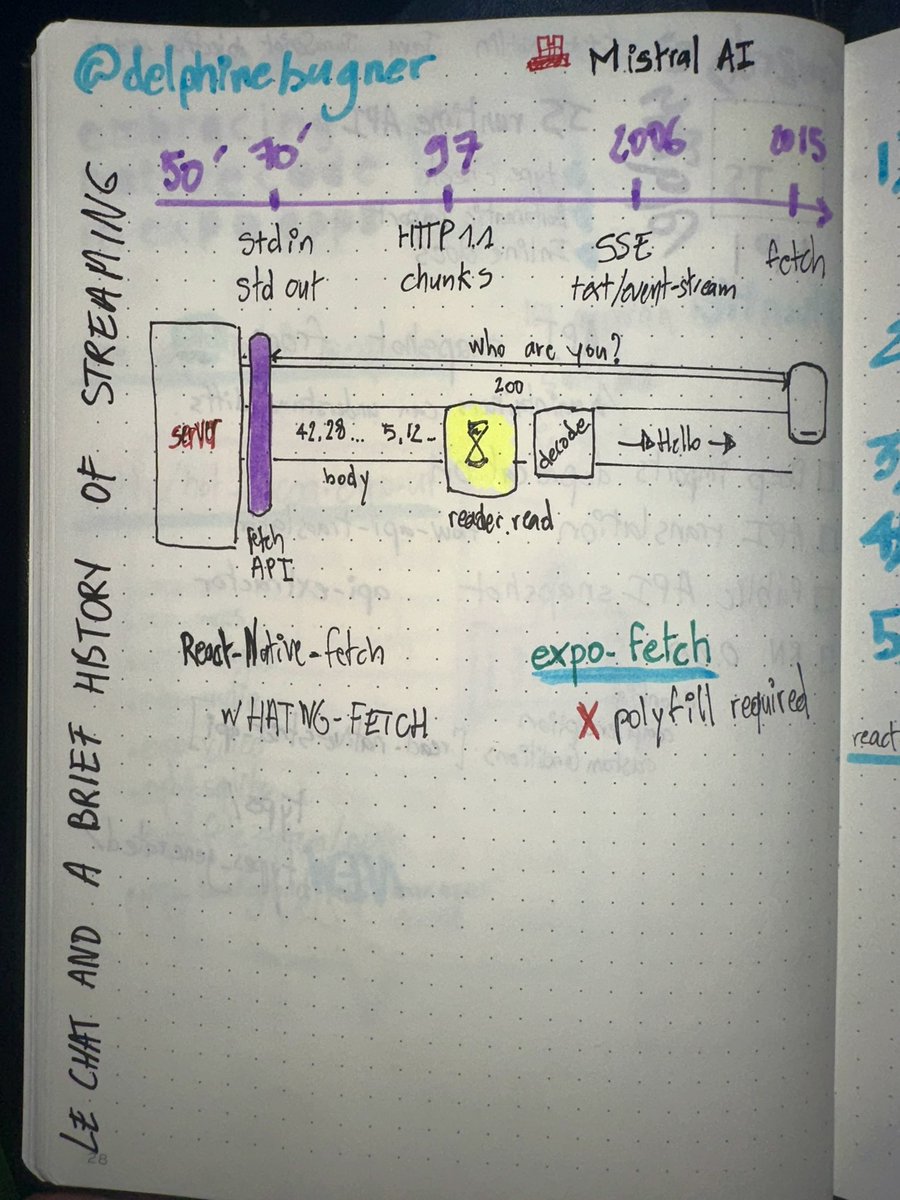 @delphinebugner
Mistral AI
50' 70' 97 2006 2015
stdin
std out
HTTP 1.1
chunks
SSE
text/event-stream
fetch
LE CHAT AND A BRIEF HISTORY OF STREAMING
who are you?
200
server
42, 28... 5, 12..
body
reader.read
decode
Hello
fetch
API
React-Native-fetch
WHATNG-FETCH
expo-fetch
X polyfill required
28
1
2
3
4
5
react